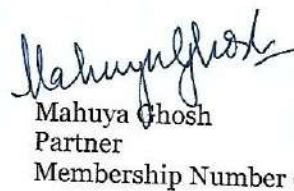 Mahuya Ghosh
Mahuya Ghosh
Partner
Membership Number